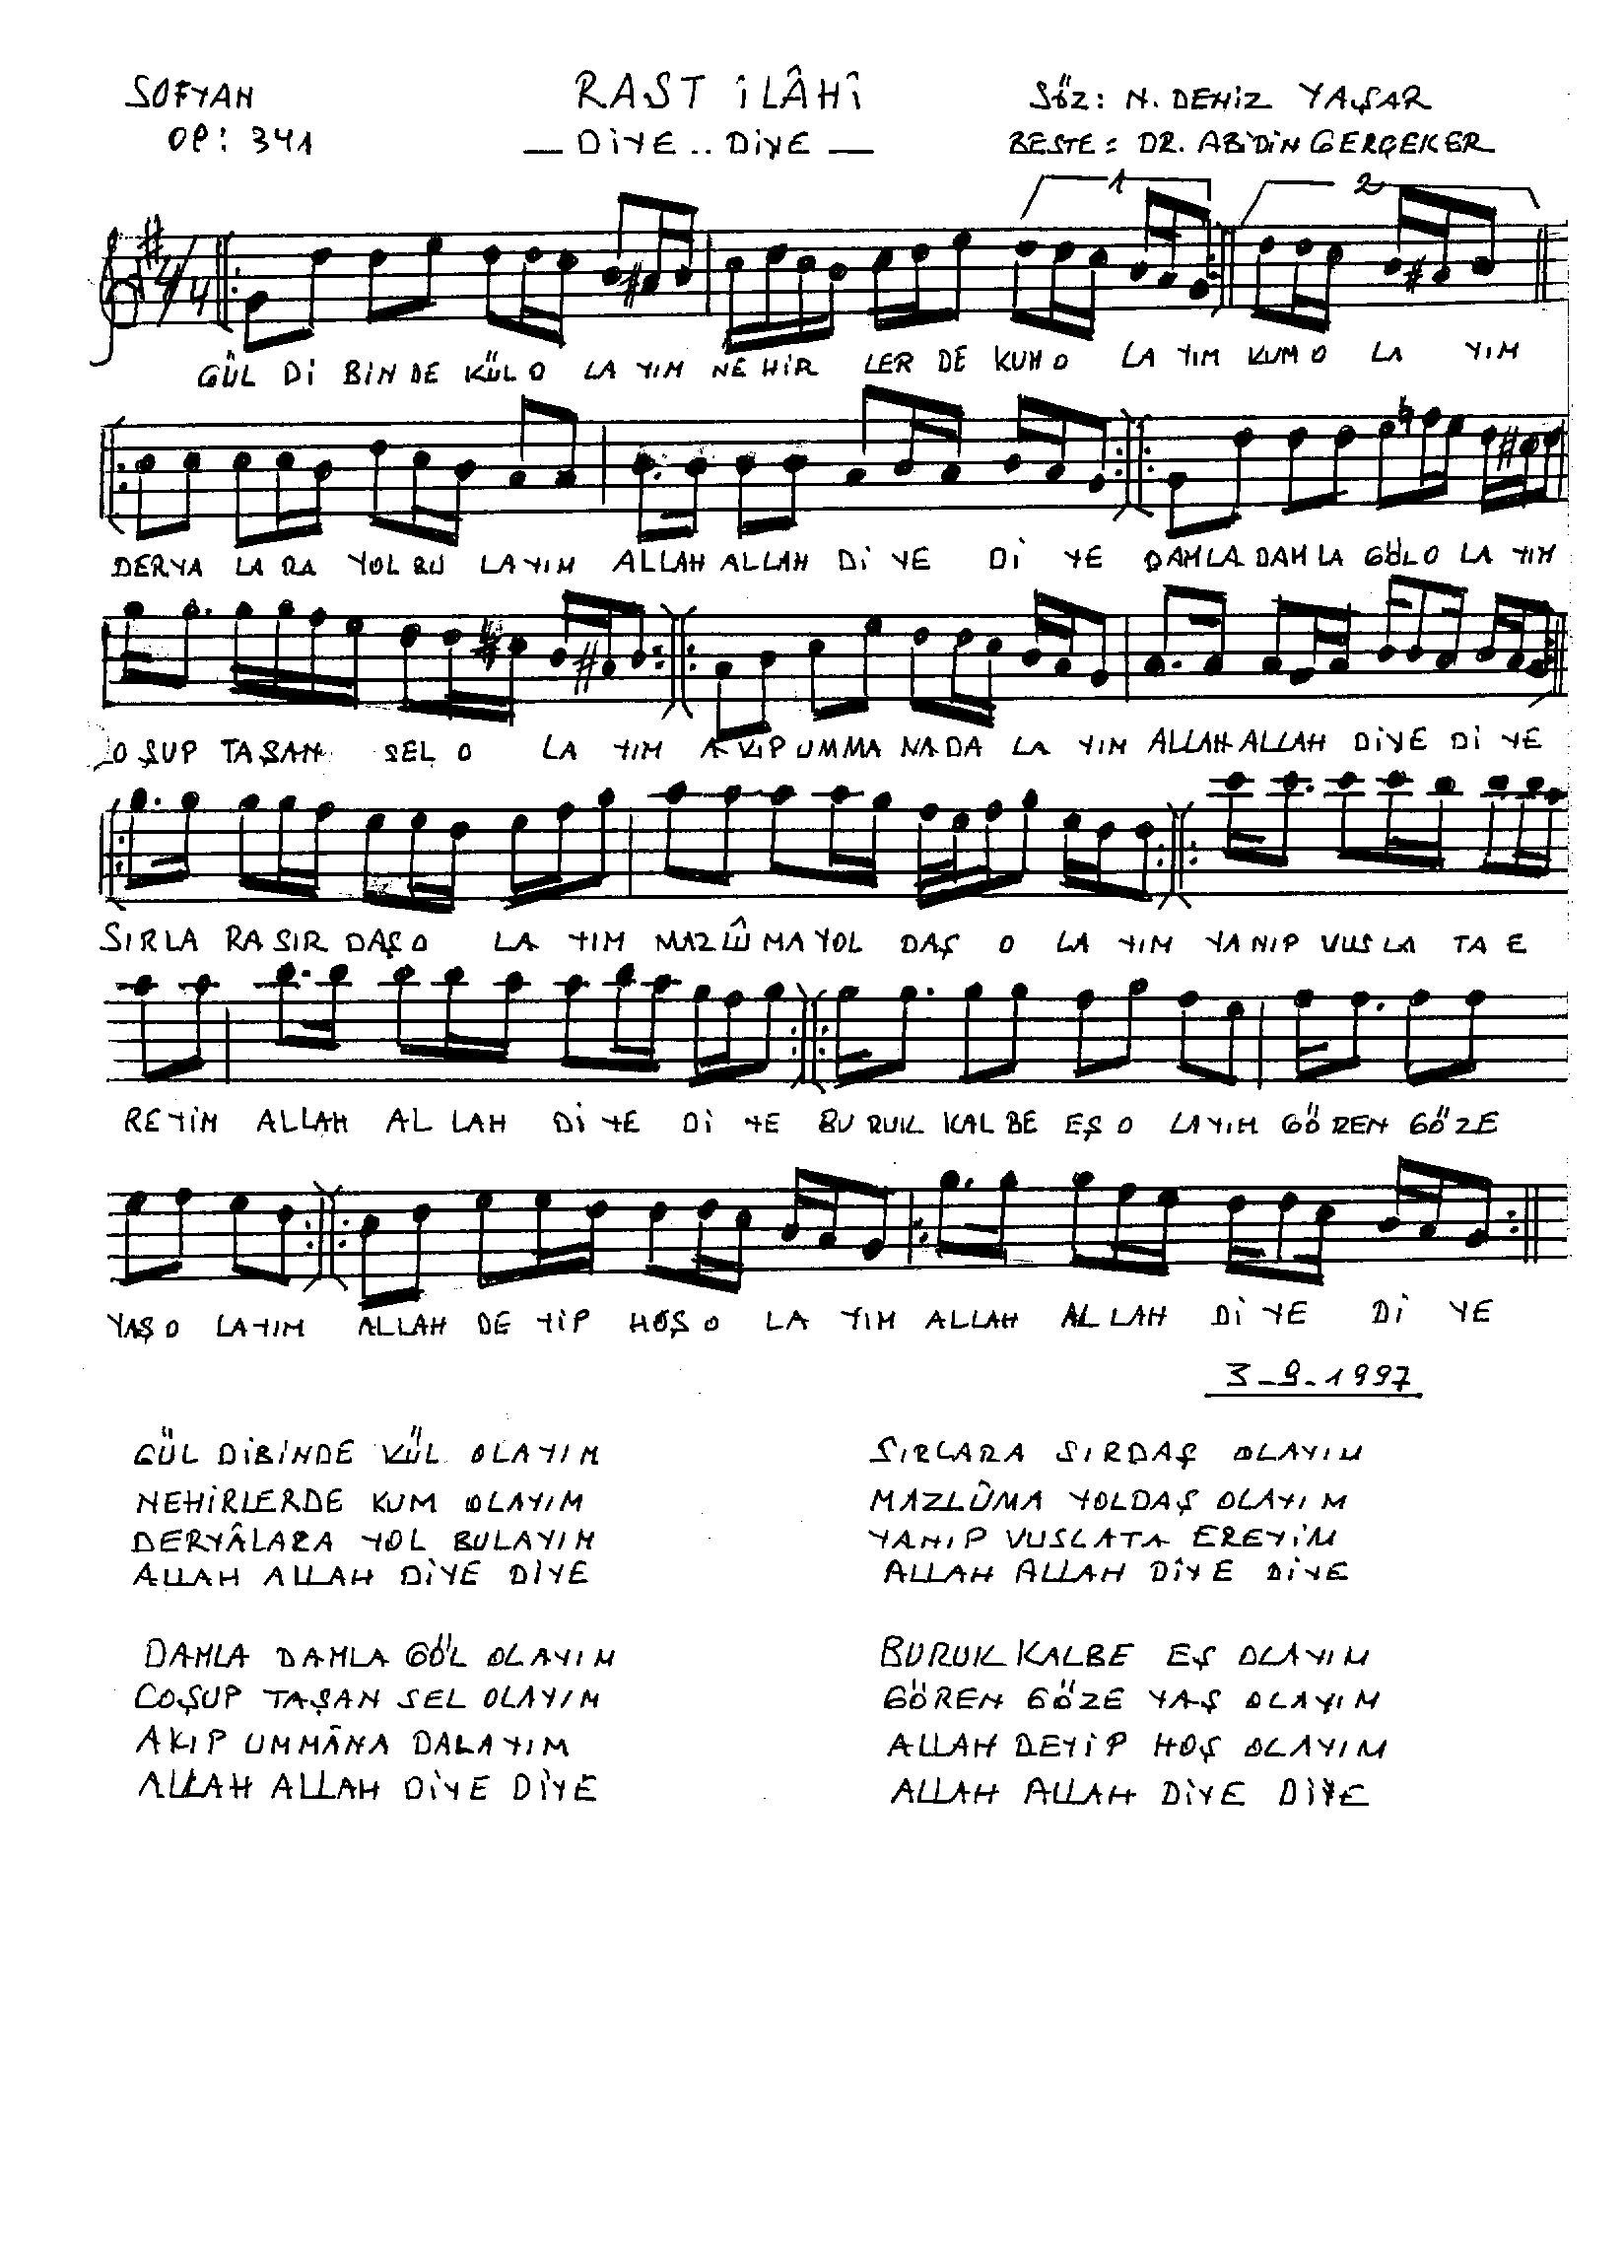 SOFYAN
OP: 341
RAST İLÂHÎ
— DİYE .. DİYE —
SÖZ: N. DENİZ YAŞAR
BESTE: DR. ABİDİN GERÇEKER
4/4
1 2
GÜL Dİ BİN DE KÜL O LA YIM NE HİR LER DE KUM O LA YIM KUM O LA YIM
DERYA LA RA YOL BU LAYIM ALLAH ALLAH Dİ YE Dİ YE DAMLA DAMLA GÖL O LA YIM
COŞUP TAŞAN SEL O LA YIM A KIP UMMA NA DA LA YIM ALLAH ALLAH DİYE Dİ YE
SIRLA RA SIR DAŞ O LA YIM MAZLÛ MA YOL DAŞ O LA YIM YANIP VUS LA TA E
REYİM ALLAH AL LAH Dİ YE Dİ YE BU RUK KAL BE EŞ O LAYIM GÖ REN GÖZE
YAŞ O LAYIM ALLAH DE YİP HOŞ O LA YIM ALLAH AL LAH Dİ YE Dİ YE
3-9-1997
GÜL DİBİNDE KÜL OLAYIM
NEHİRLERDE KUM OLAYIM
DERYÂLARA YOL BULAYIM
ALLAH ALLAH DİYE DİYE
DAMLA DAMLA GÖL OLAYIM
COŞUP TAŞAN SEL OLAYIM
AKIP UMMÂNA DALAYIM
ALLAH ALLAH DİYE DİYE
SIRLARA SIRDAŞ OLAYIM
MAZLÛMA YOLDAŞ OLAYIM
YANIP VUSLATA EREYİM
ALLAH ALLAH DİYE DİYE
BURUK KALBE EŞ OLAYIM
GÖREN GÖZE YAŞ OLAYIM
ALLAH DEYİP HOŞ OLAYIM
ALLAH ALLAH DİYE DİYE